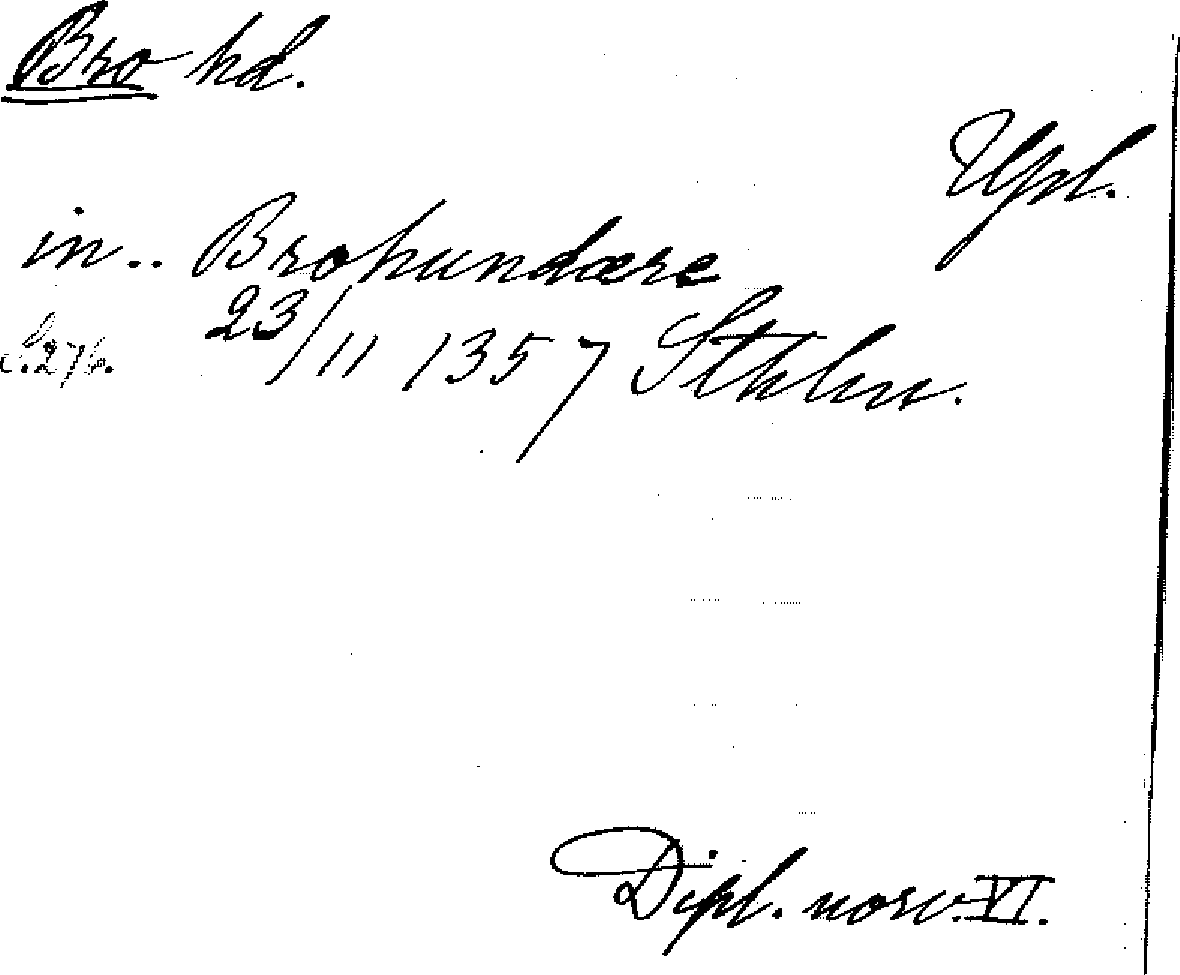 Bro hd.
Upl.
in.. Brohundære
S. 276. 23/11 1357 Sthlm.
Dipl. norv. VI.